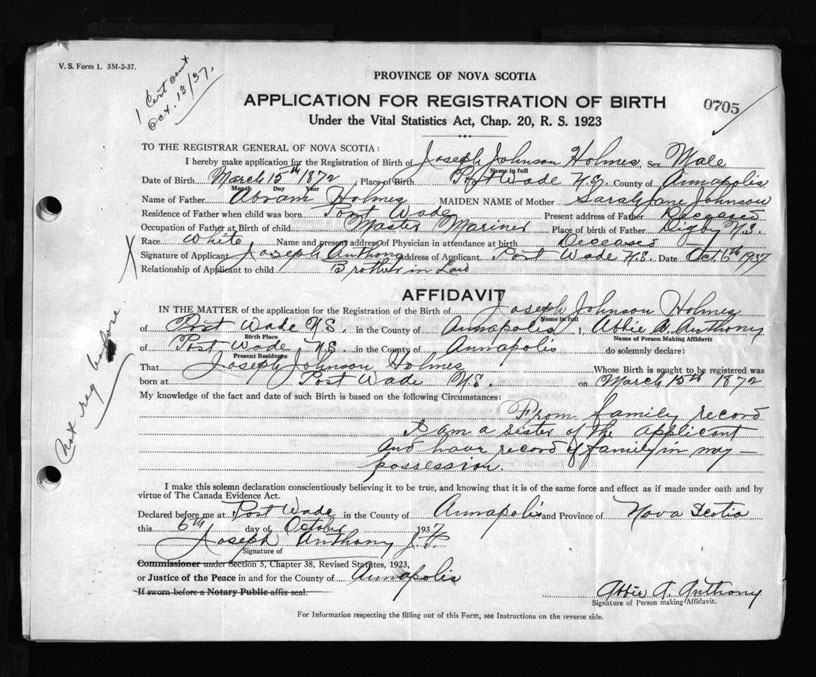 V. S. Form 1. 3M-2-37.
1 Cert sent
Oct. 13/37.
PROVINCE OF NOVA SCOTIA
APPLICATION FOR REGISTRATION OF BIRTH
0705
Under the Vital Statistics Act, Chap. 20, R. S. 1923
TO THE REGISTRAR GENERAL OF NOVA SCOTIA:
I hereby make application for the Registration of Birth of Joseph Johnson Holmes, Sex Male
Name in full
Date of Birth March 15th 1872, Place of Birth Port Wade N.S. County of Annapolis
Month Day Year
Name of Father Abram Holmes MAIDEN NAME of Mother Sarah Jane Johnson
Residence of Father when child was born Port Wade Present address of Father Deceased
Occupation of Father at Birth of child Master Mariner Place of birth of Father Digby N.S.
Race White Name and present address of Physician in attendance at birth Deceased
Signature of Applicant Joseph Anthony address of Applicant Port Wade N.S. Date Oct. 6th 1937
Relationship of Applicant to child Brother in Law
AFFIDAVIT
IN THE MATTER of the application for the Registration of the Birth of Joseph Johnson Holmes
Name in full
of Port Wade N.S. in the County of Annapolis I, Abbie A. Anthony
Birth Place Name of Person Making Affidavit
of Port Wade, N.S. in the County of Annapolis do solemnly declare:
Present Residence
That Joseph Johnson Holmes Whose Birth is sought to be registered was
born at Port Wade N.S. on March 15th 1872
My knowledge of the fact and date of such Birth is based on the following Circumstances:
From family record
I am a sister of the applicant
and have record of family in my
possession.
Not reg before
I make this solemn declaration conscientiously believing it to be true, and knowing that it is of the same force and effect as if made under oath and by
virtue of The Canada Evidence Act.
Declared before me at Port Wade in the County of Annapolis and Province of Nova Scotia
this 6th day of October 1937
Joseph Anthony J.P.
Signature of
Commissioner under Section 5, Chapter 38, Revised Statutes, 1923,
or Justice of the Peace in and for the County of Annapolis
If sworn before a Notary Public affix seal.
Abbie A. Anthony
Signature of Person making Affidavit.
For Information respecting the filling out of this Form, see Instructions on the reverse side.